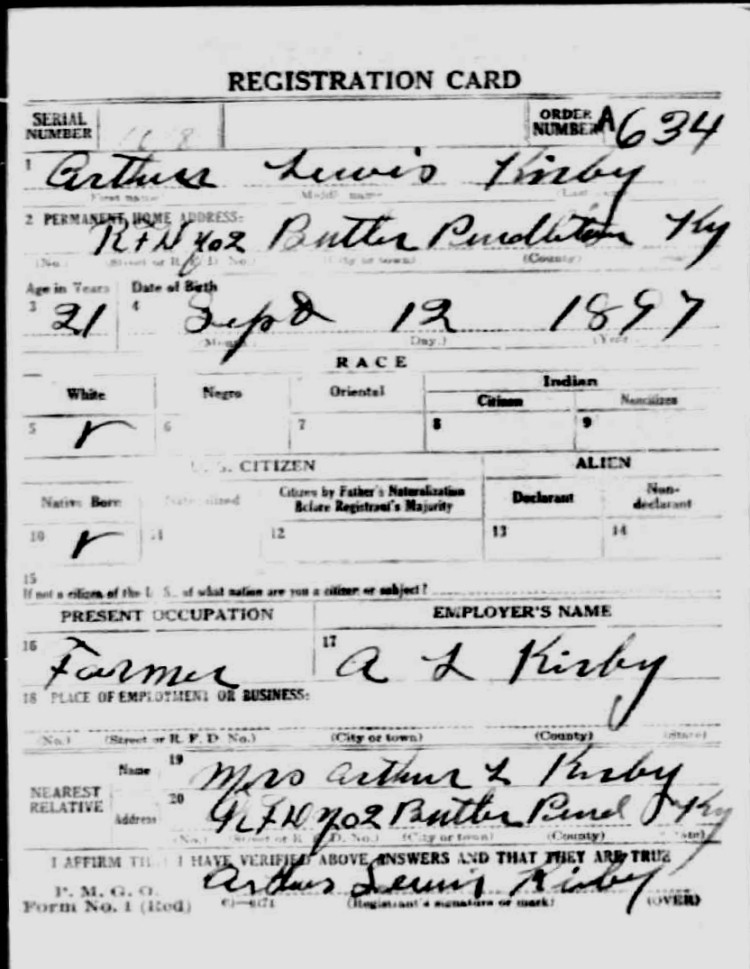 REGISTRATION CARD
SERIAL NUMBER 1 6 8 ORDER NUMBER A634
1 Arthur Lewis Kirby
First name Middle name Last name
2 PERMANENT HOME ADDRESS:
RFD No2 Butler Pendleton Ky
(No.) (Street or R. F. D. No.) (City or town) (County)
Age in Years Date of Birth
3 21 4 Sept 12 1897
(Month) (Day.) (Year)
RACE
White Negro Oriental Indian
Citizen Noncitizen
5 ✓ 6 7 8 9
U. S. CITIZEN ALIEN
Native Born Naturalized Citizen by Father's Naturalization Before Registrant's Majority Declarant Non-declarant
10 ✓ 11 12 13 14
15
If not a citizen of the U. S., of what nation are you a citizen or subject?
PRESENT OCCUPATION EMPLOYER'S NAME
16 Farmer 17 A L Kirby
18 PLACE OF EMPLOYMENT OR BUSINESS:
(No.) (Street or R. F. D. No.) (City or town) (County) (State)
NEAREST RELATIVE
Name 19 Mrs Arthur L Kirby
Address 20 RFD No2 Butler Pend Ky
(No.) (Street or R. F. D. No.) (City or town) (County) (State)
I AFFIRM THAT I HAVE VERIFIED ABOVE ANSWERS AND THAT THEY ARE TRUE
P. M. G. O.
Form No. 1 (Red) Arthur Lewis Kirby
(Registrant's signature or mark) (OVER)